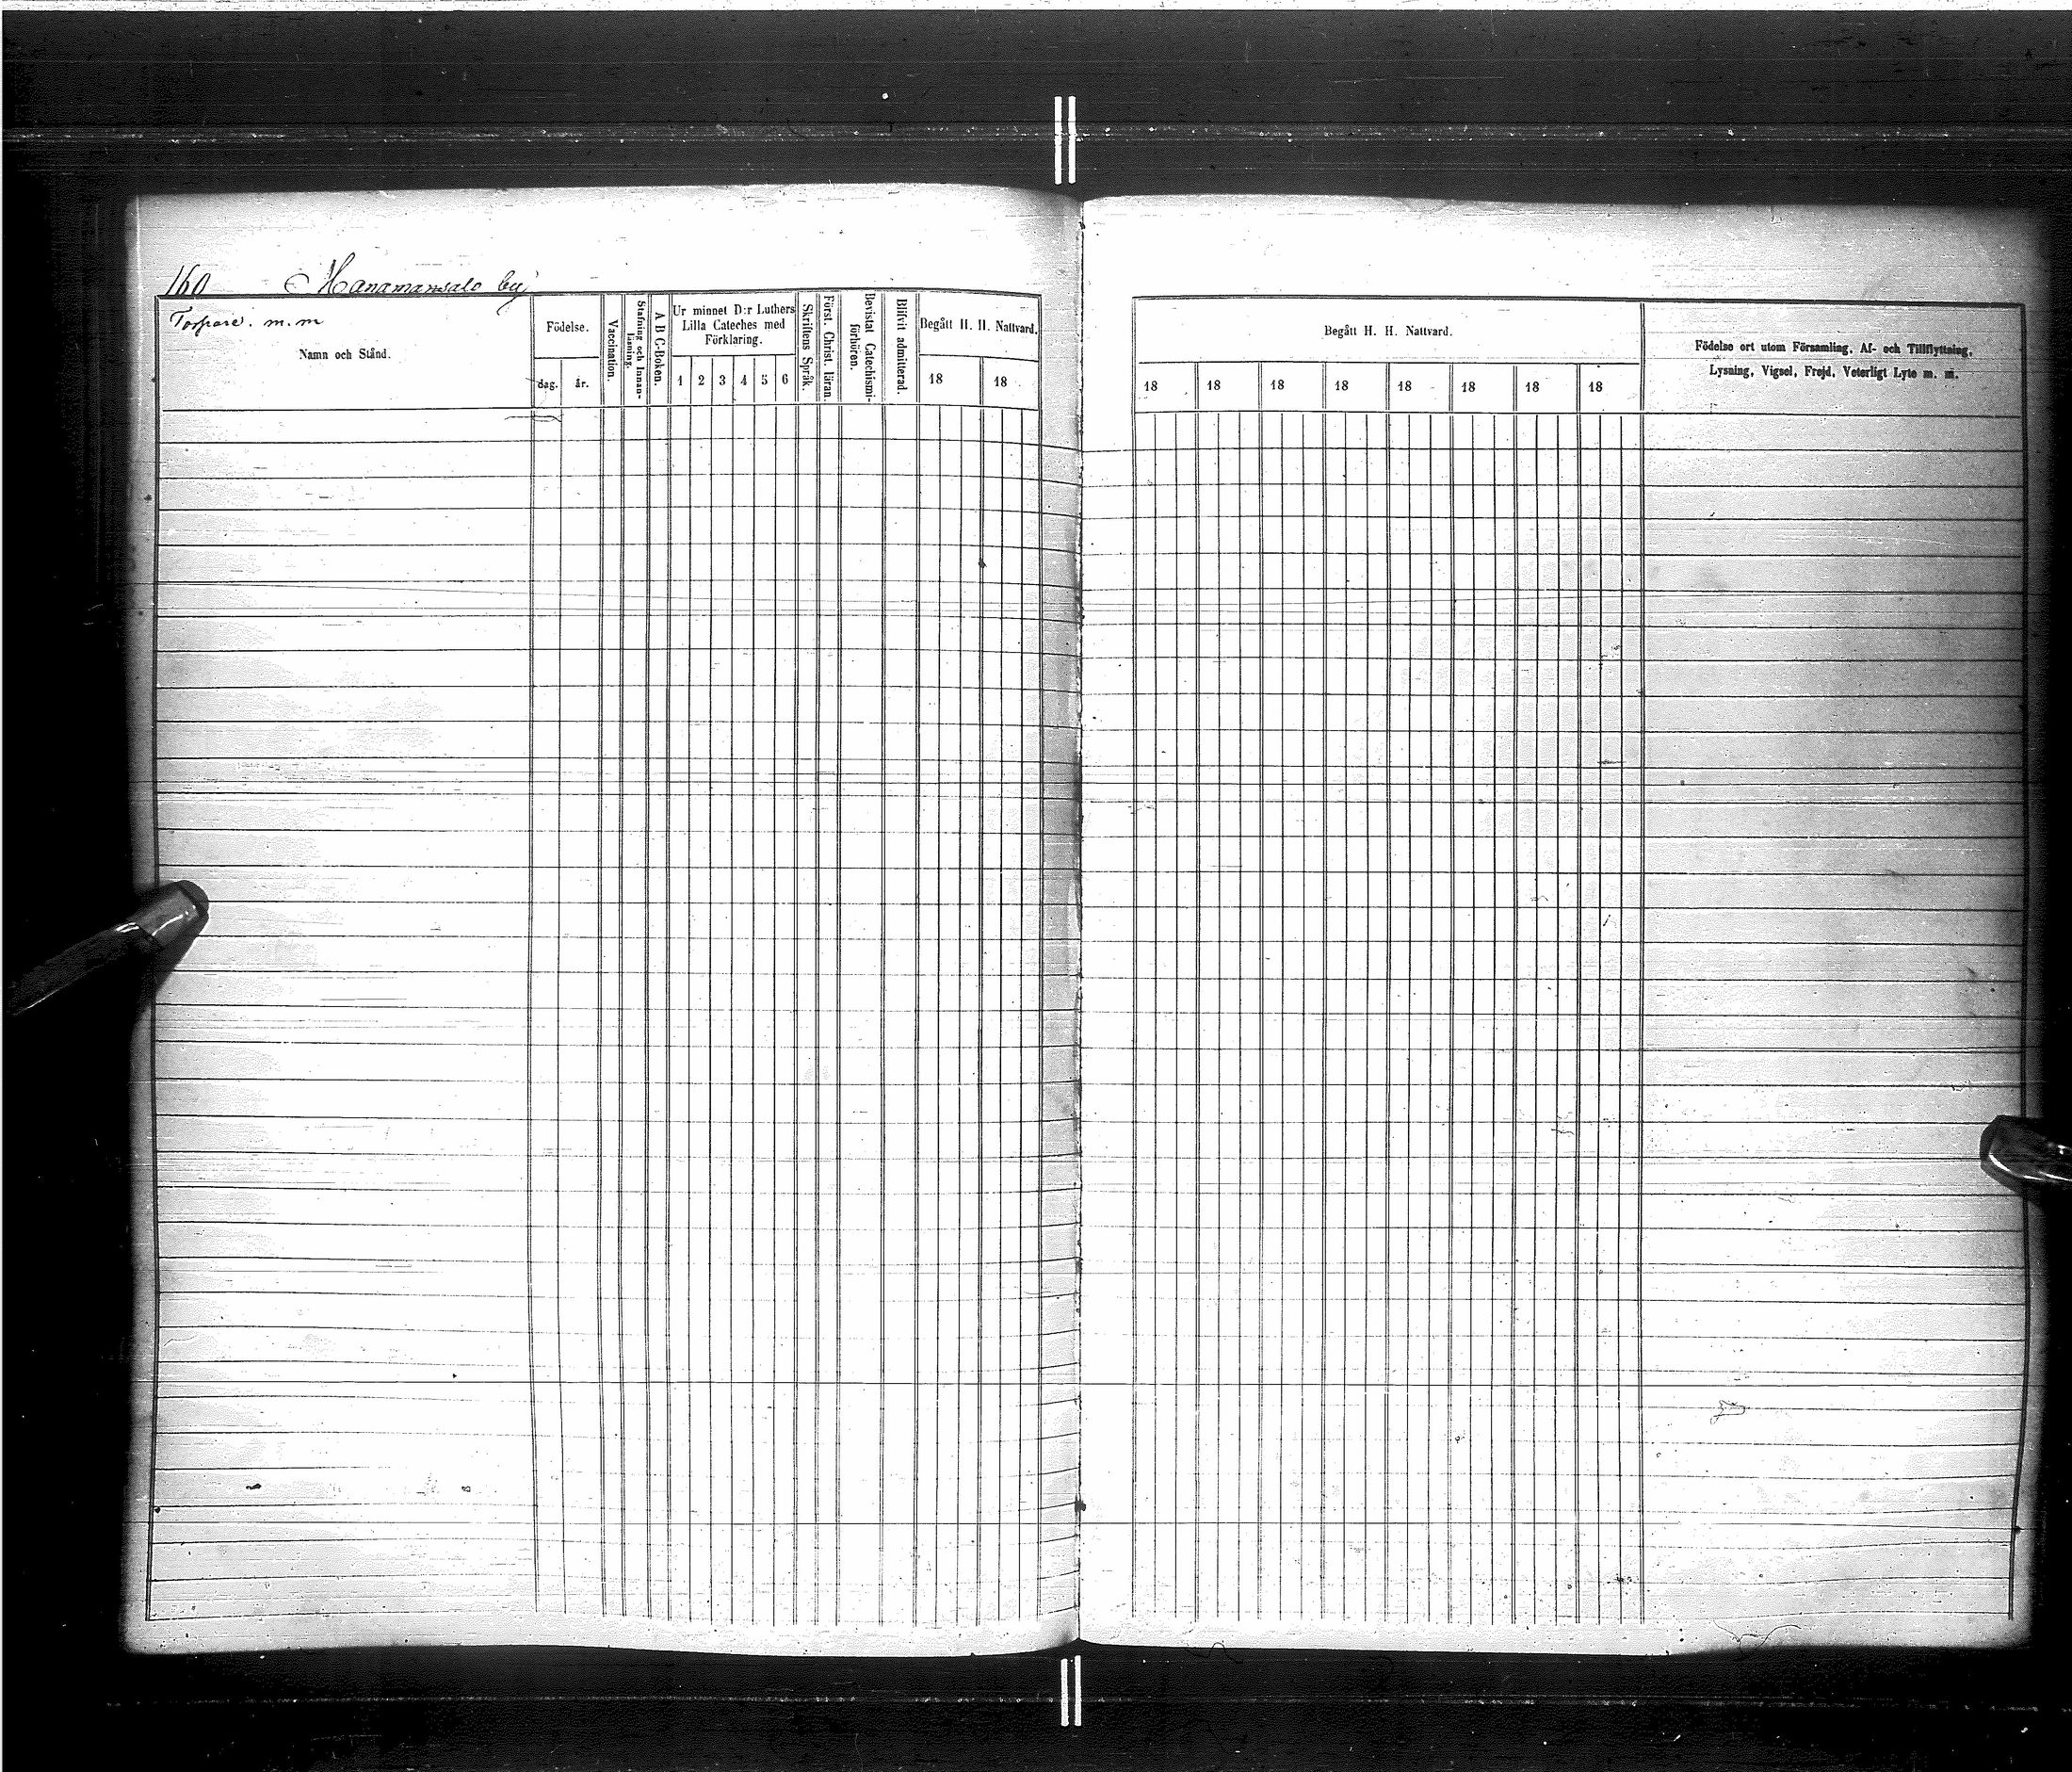 160 Manamansalo by
Torpare. m. m
Namn och Stånd.
Födelse.
dag. år.
Vaccination.
Stafning och Innan-
läsning.
A B C-Boken.
Ur minnet D:r Luthers
Lilla Cateches med
Förklaring.
1 2 3 4 5 6
Skriftens Språk.
Först. Christ. läran.
Bevistat Catechismi-
förhören.
Blifvit admitterad.
Begått H. H. Nattvard.
18 18
Begått H. H. Nattvard.
18 18 18 18 18 18 18 18
Födelse ort utom Församling, Af- och Tillflyttning,
Lysning, Vigsel, Frejd, Veterligt Lyte m. m.